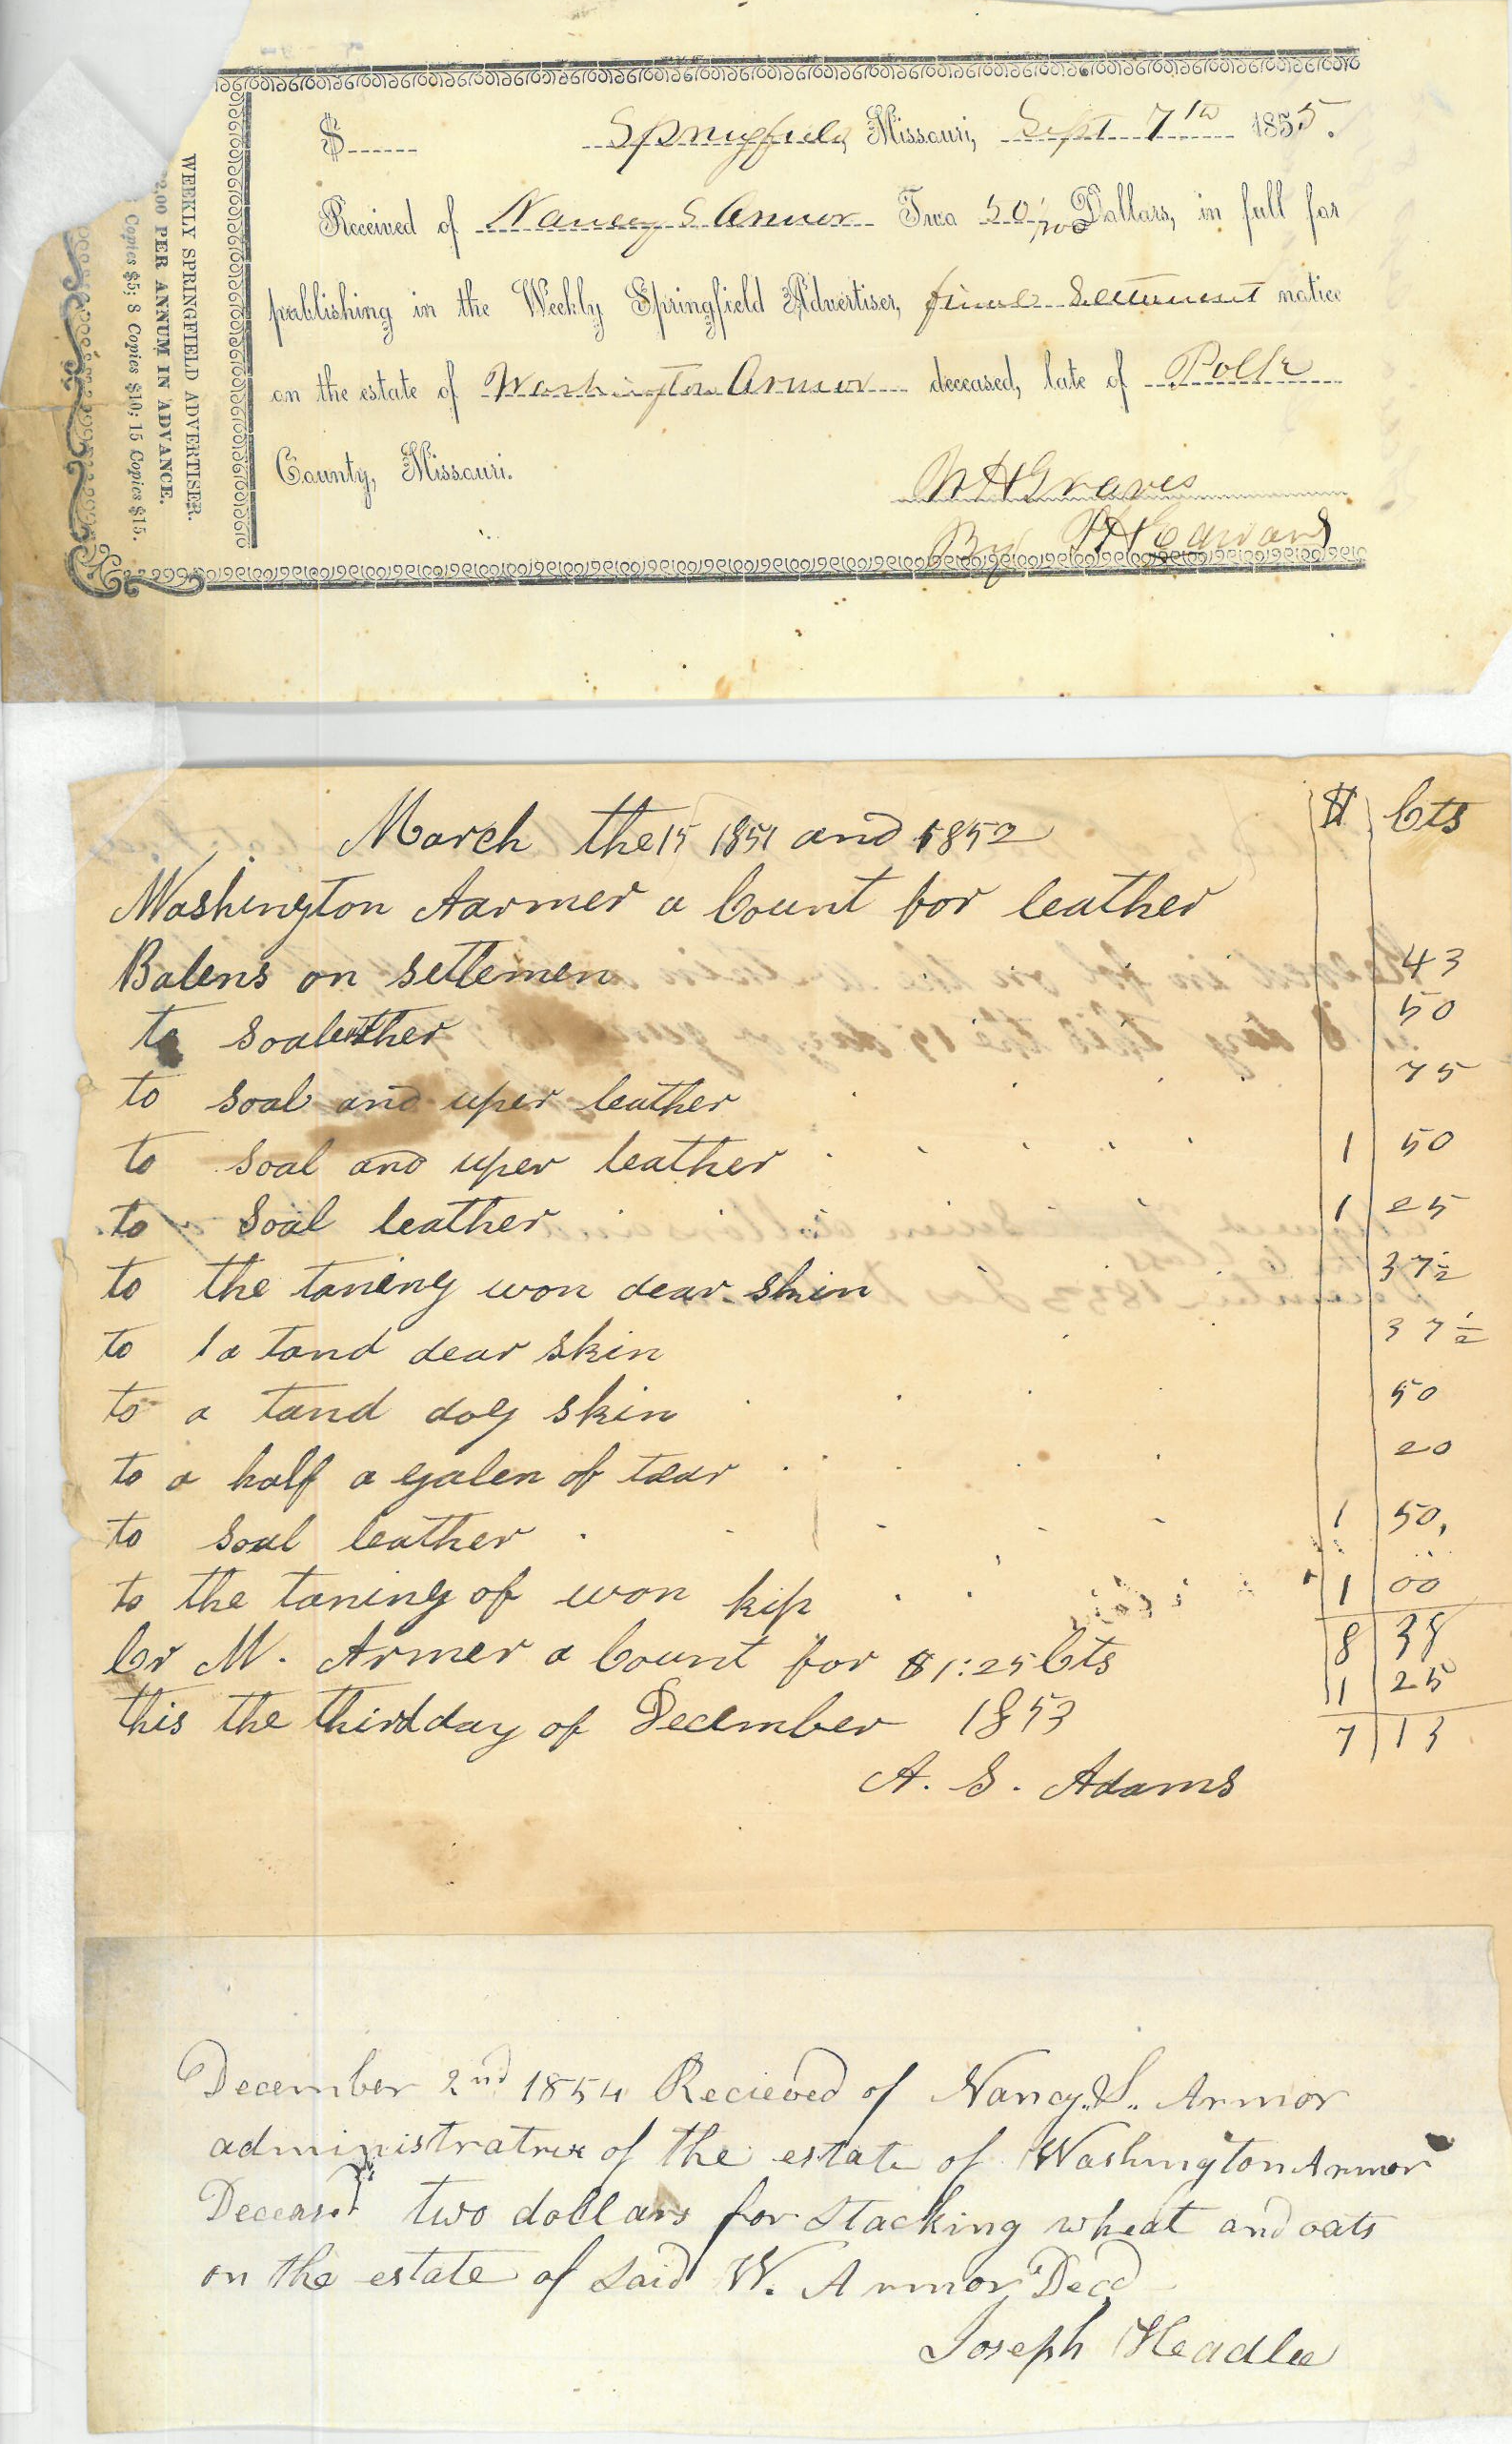 $ Springfield, Missouri, Sept 7th 1855.
Received of Nancy S Armor Two 50/100 Dollars, in full for
publishing in the Weekly Springfield Advertiser, final Settlement notice
on the estate of Washington Armor deceased, late of Polk
County, Missouri.
W H Graves
By H Edwards
WEEKLY SPRINGFIELD ADVERTISER.
2,00 PER ANNUM IN ADVANCE.
Copies $5; 8 Copies $10; 15 Copies $15.
$ Cts
March the 15 1851 and 1852
Washington Aarmer a Count for leather
Balens on setlemen 43
to soaleather 50
to soal and uper leather 75
to soal and uper leather 1 50
to soal leather 1 25
to the taneng won dear skin 37 1/2
to 1 a tand dear skin 37 1/2
to a tand dog skin 50
to a half a galen of taar 20
to soal leather 1 50
to the taning of won kip 1 00
8 38
Cr W. Armer a Count for $1:25 Cts 1 25
this the third day of December 1853 7 13
A. S. Adams
December 2nd 1854 Recieved of Nancy. S. Armor
administratrix of the estate of Washington Armor
Deceasd two dollars for stacking wheat and oats
on the estate of said W. Armor Decd
Joseph Headlee